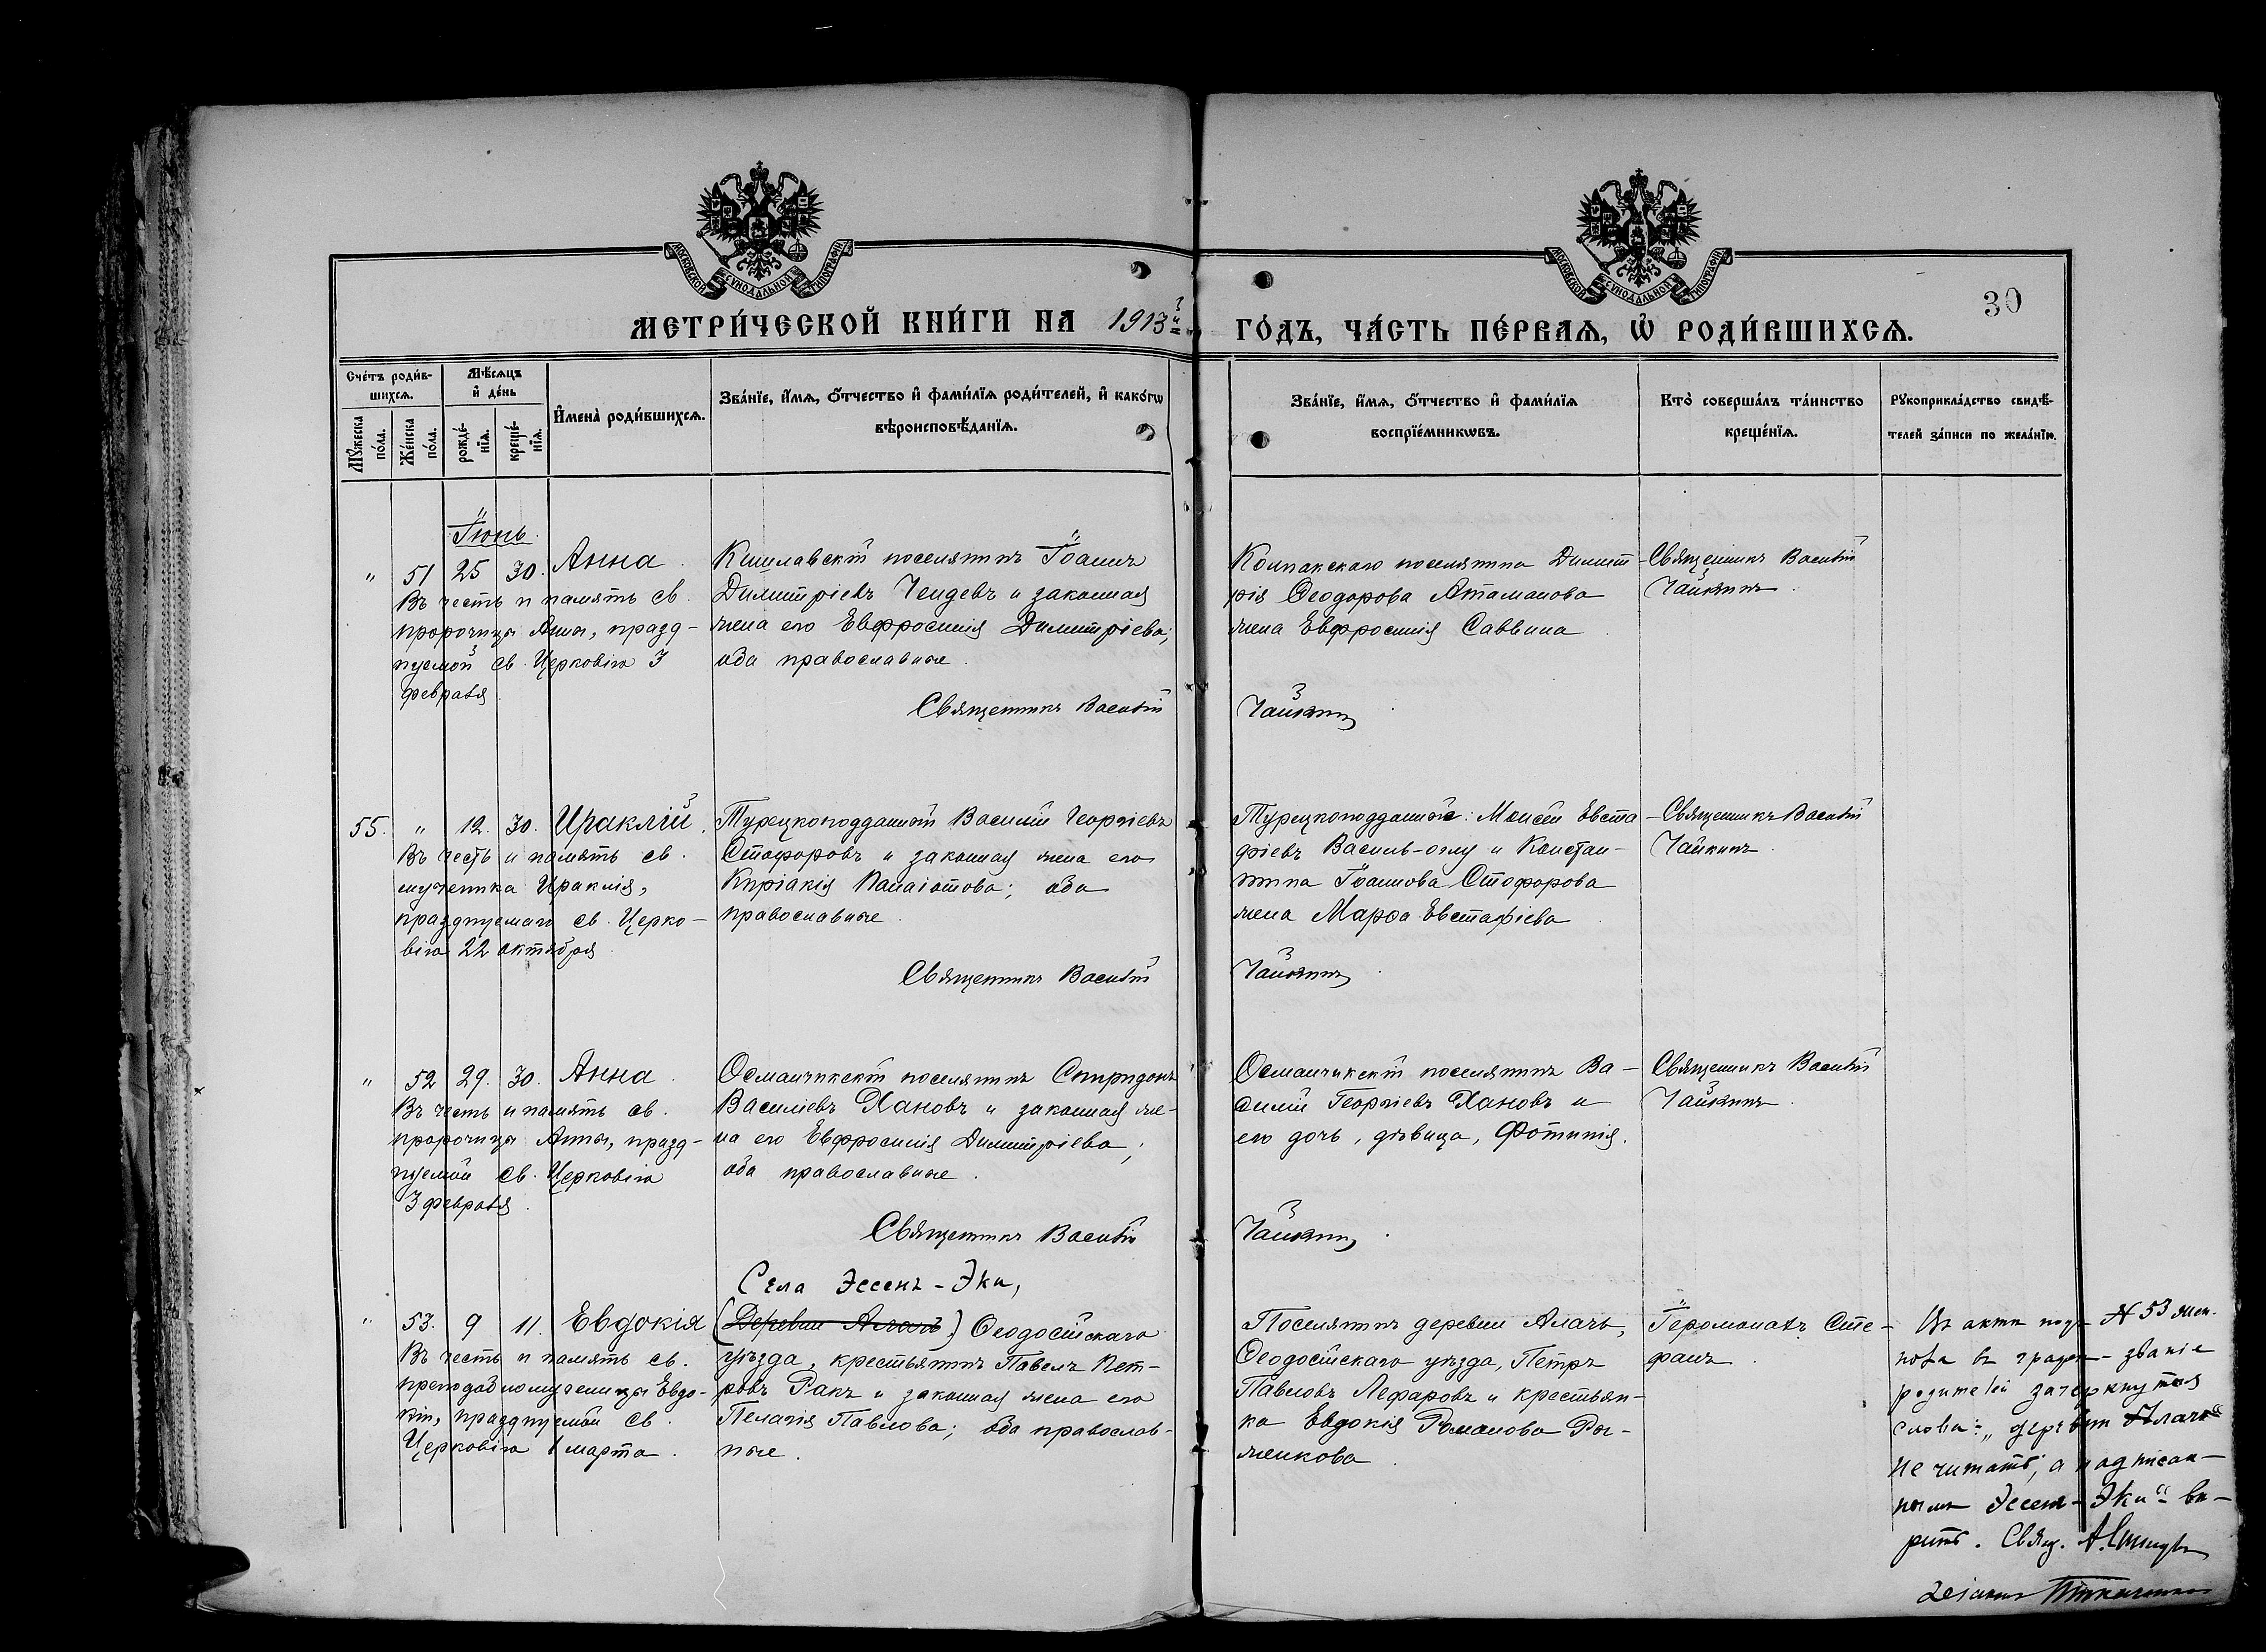 МОСКОВСКОЙ СѴНОДАЛЬНОЙ ТИПОГРАФІИ
МОСКОВСКОЙ СѴНОДАЛЬНОЙ ТИПОГРАФІИ
30
МЕТРИ́ЧЕСКОЙ КНИ́ГИ НА 1913й
ГО́ДЪ, ЧА́СТЬ ПЕ́РВАѦ, Ѡ҆ РОДИ́ВШИХСѦ.
Сче́тъ роди́в-
шихсѧ.
Мѣ́сѧцъ
и҆ де́нь
Мꙋ́жеска
по́ла.
Же́нска
по́ла.
рожде́-
нїѧ.
креще́-
нїѧ.
И҆мена̀ роди́вшихсѧ.
Зва́нїе, и҆́мѧ, ѻ҆́тчество и҆ фами́лїѧ роди́телей, и҆ како́гѡ
вѣроисповѣ́данїѧ.
Зва́нїе, и҆́мѧ, ѻ҆́тчество и҆ фами́лїѧ
воспрїе́мникѡвъ.
Кто̀ соверша́лъ та́инство
креще́нїѧ.
Рꙋкоприкла́дство свидѣ́-
телей за́писи по жела́нїю.
Іюнь.
" 51 25 30. Анна.
Въ честь и память св.
пророчицы Анны, празд-
нуемой св. Церковію 3
февраля.
Кишлавскій поселянинъ Іоаннъ
Димитріевъ Чендевъ и законная
жена его Евфросинія Димитріева;
оба православные.
Священникъ Василій
Колпакскаго поселянина Димит-
рія Ѳеодорова Атаманова
жена Евфросинія Саввина
Чайкинъ
Священникъ Василій
Чайкинъ.
55. " 12. 30. Ираклій.
Въ честь и память св.
мученика Ираклія,
празднуемаго св. Церко-
вію 22 октября
Турецкоподданный Василій Георгіевъ
Стофоровъ и законная жена его
Киріакія Панаіотова; оба
православные.
Священникъ Василій
Турецкоподданные: Моисей Евста-
фіевъ Василь-оглу и Констан-
тина Іоаннова Стофорова
жена Марѳа Евстафіева.
Чайкинъ
Священникъ Василій
Чайкинъ.
" 52 29. 30. Анна.
Въ честь и память св.
пророчицы Анны, празд-
нуемой св. Церковію
3 февраля.
Османчикскій поселянинъ Спиридонъ
Василіевъ Хановъ и законная же-
на его Евфросинія Димитріева;
оба православные.
Священникъ Василій
Османчикскій поселянинъ Ва-
силій Георгіевъ Хановъ и
его дочь, дѣвица, Фотинія.
Чайкинъ
Священникъ Василій
Чайкинъ.
Села Эссенъ-Эки,
" 53. 9 11. Евдокія
Въ честь и память св.
преподобномученицы Евдо-
кіи, празднуемой св.
Церковію 1 марта.
(Деревни Алачъ) Ѳеодосійскаго
уѣзда, крестьянинъ Павелъ Пет-
ровъ Ракъ и законная жена его
Пелагія Павлова; оба православ-
ные.
Поселянинъ деревни Алачъ,
Ѳеодосійскаго уѣзда, Петръ
Павловъ Лефаровъ и крестьян-
ка Евдокія Романова Ры-
женкова.
Іеромонахъ Сте-
фанъ.
Въ актѣ подъ N 53 жен.
пола въ графѣ - званіе
родителей зачеркнутыя
слова: „деревни Алачъ“
не читать, а надписан-
нымъ Эссенъ-Эки“ вѣ-
рить. Свящ.